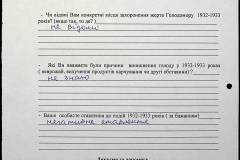 - Чи відомі Вам конкретні місця захоронення жертв Голодомору 1932-1933
років? (якщо так, то де? )
не відомо
- Які Ви вважаєте були причини виникнення голоду у 1932-1933 роках
( неврожай, вилучення продуктів харчування чи другі обставини) ?
не знаю
- Ваше особисте ставлення до подій 1932-1933 років ( за бажанням)
негативне ставлення